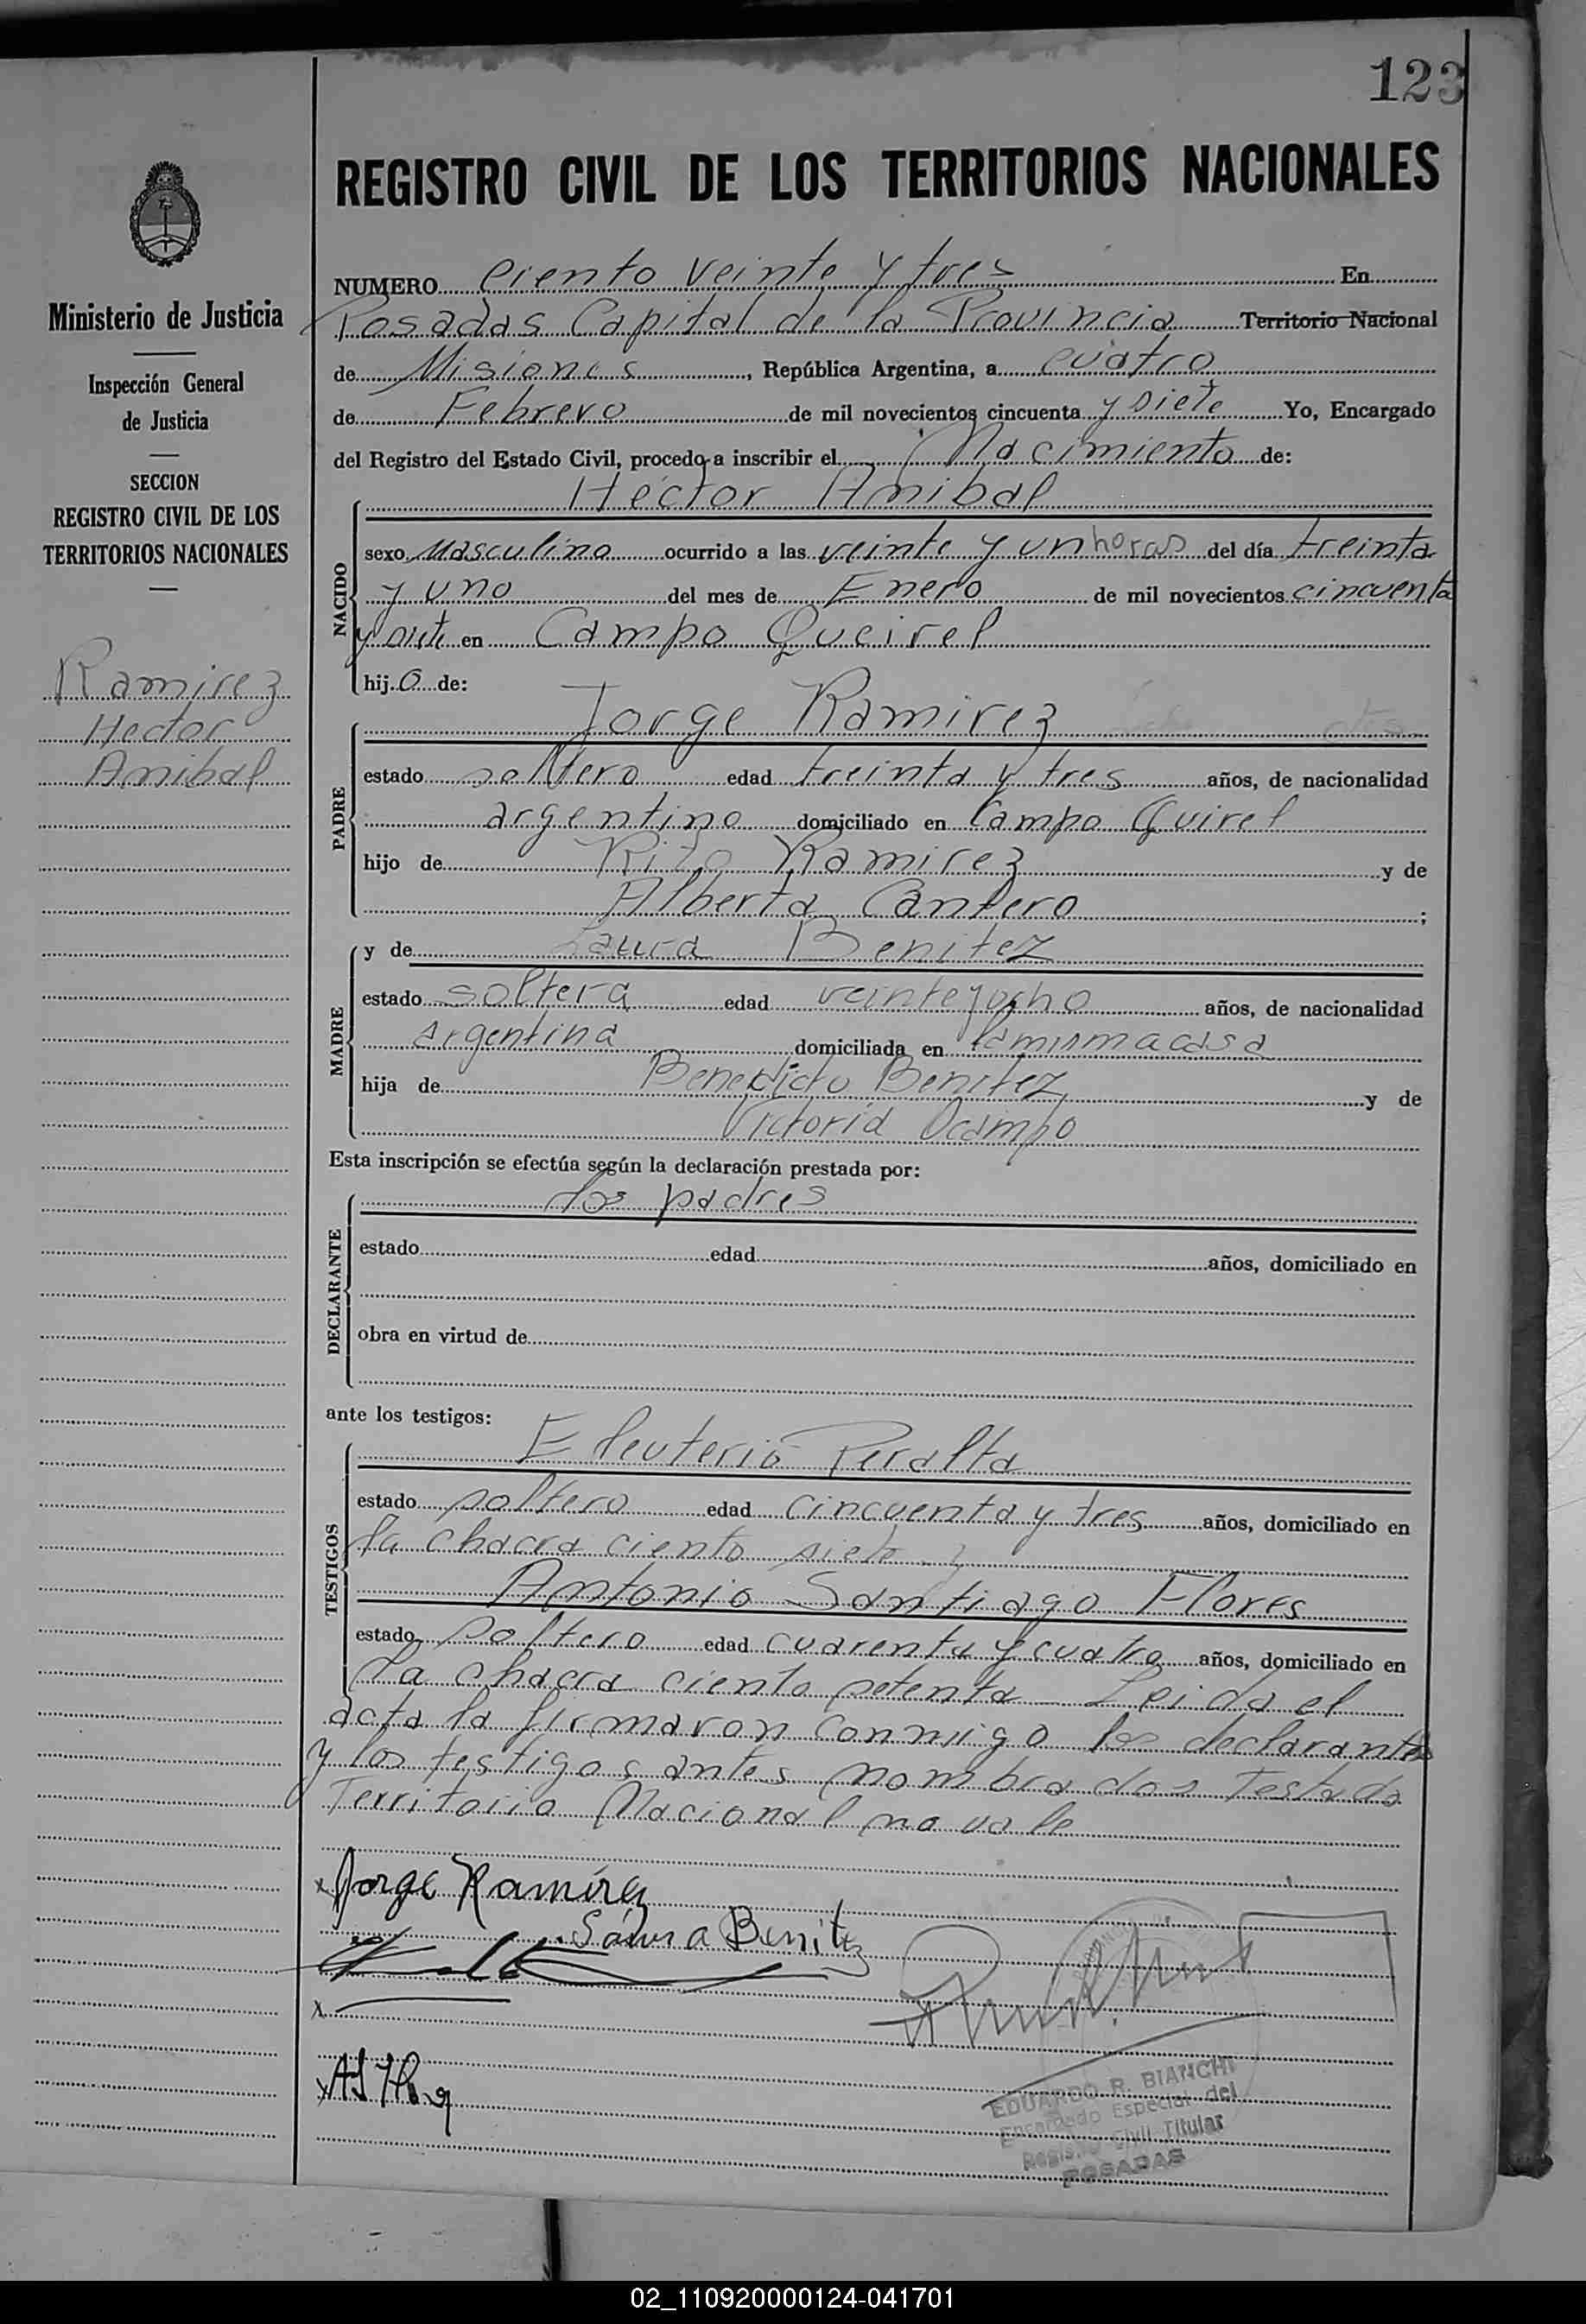 123
REGISTRO CIVIL DE LOS TERRITORIOS NACIONALES
Ministerio de Justicia
Inspección General
de Justicia
SECCION
REGISTRO CIVIL DE LOS
TERRITORIOS NACIONALES
Ramirez
Hector
Anibal
NUMERO Ciento veinte y tres En
Posadas Capital de la Provincia Territorio Nacional
de Misiones, República Argentina, a cuatro
de Febrero de mil novecientos cincuenta y siete Yo, Encargado
del Registro del Estado Civil, procedo a inscribir el Nacimiento de:
NACIDO
Héctor Anibal
sexo Masculino ocurrido a las veinte y un horas del día treinta
y uno del mes de Enero de mil novecientos cincuenta
y siete en Campo Queirel
hijo de:
PADRE
Jorge Ramirez
estado soltero edad treinta y tres años, de nacionalidad
argentino domiciliado en Campo Quirel
hijo de Rito Ramirez y de
Alberta Cantero;
MADRE
y de Laura Benitez
estado soltera edad veinte y ocho años, de nacionalidad
argentina domiciliada en la misma casa
hija de Benedicto Benitez y de
Victoria Ocampo
Esta inscripción se efectúa según la declaración prestada por:
DECLARANTE
los padres
estado edad años, domiciliado en
obra en virtud de
ante los testigos:
TESTIGOS
Eleuterio Peralta
estado soltero edad cincuenta y tres años, domiciliado en
la chacra ciento siete y
Antonio Santiago Flores
estado soltero edad cuarenta y cuatro años, domiciliado en
la chacra ciento setenta - Leida el
acta la firmaron conmigo los declarantes
y los testigos antes nombrados Testado
Territorio Nacional no vale
x Jorge Ramírez
Benitez
x
x
EDUARDO R. BIANCHI
Encargado Especial del
Registro Civil Titular
POSADAS
02_110920000124-041701